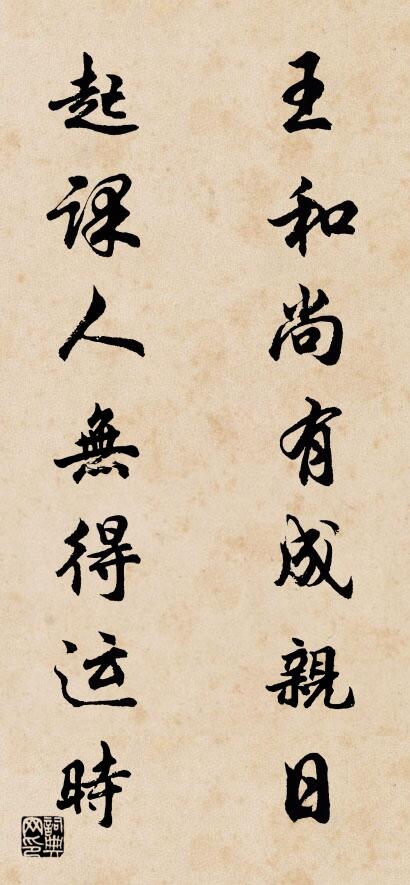 王和尚有成親日
起课人無得运時
詞典
网印